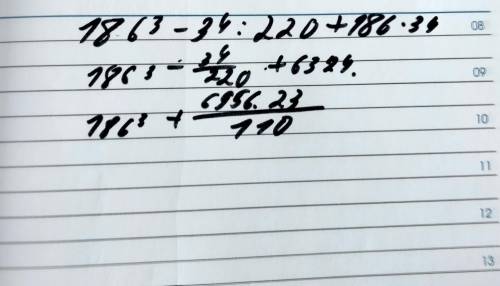 186³ - 34 : 220 + 186 · 34
08
186³ - 34/220 + 6324.
09
186³ + 6956.23/110
10
11
12
13